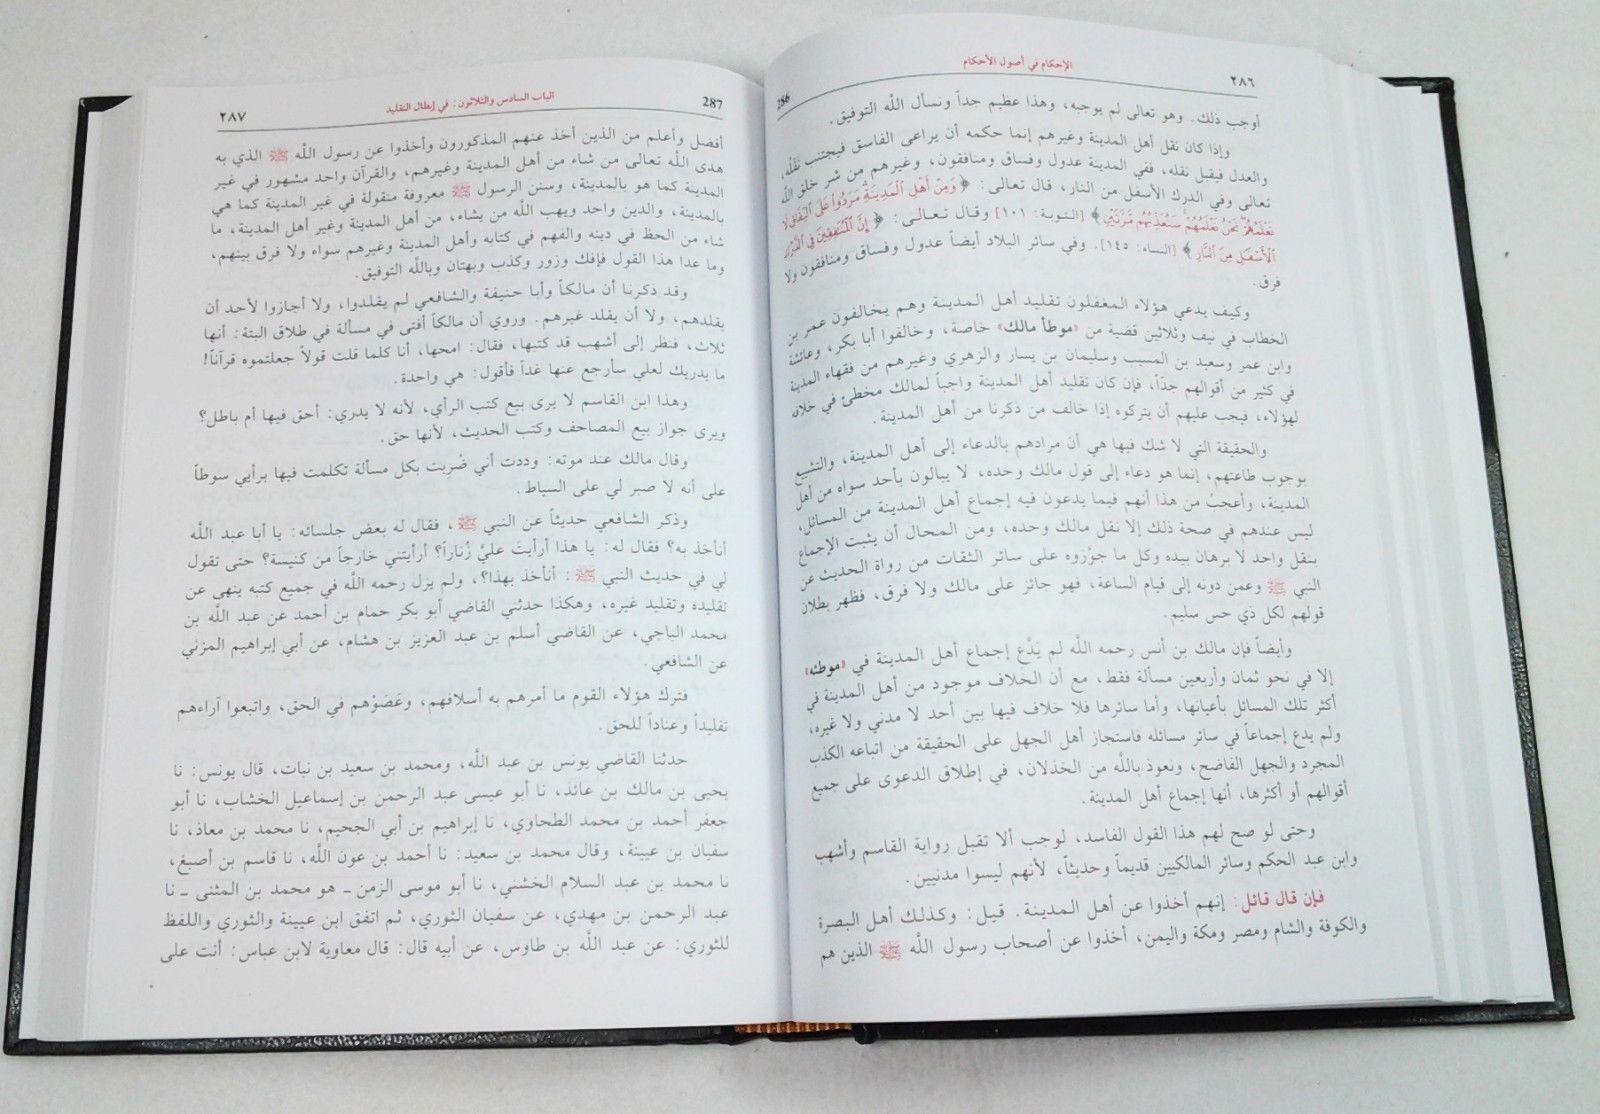 ٢٨٦
الإحكام في أصول الأحكام
286
أوجب ذلك. وهو تعالى لم يوجبه، وهذا عظيم جداً ونسأل الله التوفيق.
وإذا كان نقل أهل المدينة وغيرهم إنما حكمه أن يراعى الفاسق فيجتنب نَقْلُه،
والعدل فيقبل نقله، ففي المدينة عدول وفساق ومنافقون، وغيرهم من شر خلق الله
تعالى وفي الدرك الأسفل من النار، قال تعالى: ﴿وَمِنْ أَهْلِ الْمَدِينَةِ مَرَدُوا عَلَى النِّفَاقِ لَا
تَعْلَمُهُمْ نَحْنُ نَعْلَمُهُمْ سَنُعَذِّبُهُم مَّرَّتَيْنِ﴾ [التوبة: ١٠١] وقال تعالى: ﴿إِنَّ الْمُنَافِقِينَ فِي الدَّرْكِ
الْأَسْفَلِ مِنَ النَّارِ﴾ [النساء: ١٤٥]. وفي سائر البلاد أيضاً عدول وفساق ومنافقون ولا
فرق.
وكيف يدعي هؤلاء المغفلون تقليد أهل المدينة وهم يخالفون عمر بن
الخطاب في نيف وثلاثين قضية من «موطأ مالك» خاصة، وخالفوا أبا بكر، وعائشة
وابن عمر وسعيد بن المسيب وسليمان بن يسار والزهري وغيرهم من فقهاء المدينة
في كثير من أقوالهم جدّاً، فإن كان تقليد أهل المدينة واجباً لمالك مخطئ في خلافه
لهؤلاء، فيجب عليهم أن يتركوه إذا خالف من ذكرنا من أهل المدينة.
والحقيقة التي لا شك فيها هي أن مرادهم بالدعاء إلى أهل المدينة، والتشييع
بوجوب طاعتهم، إنما هو دعاء إلى قول مالك وحده، لا يبالون بأحد سواه من أهل
المدينة، وأعجبُ من هذا أنهم فيما يدعون فيه إجماع أهل المدينة من المسائل،
ليس عندهم في صحة ذلك إلا نقل مالك وحده، ومن المحال أن يثبت الإجماع
بنقل واحد لا برهان بيده وكل ما جوَّزوه على سائر الثقات من رواة الحديث عن
النبي ﷺ وعمن دونه إلى قيام الساعة، فهو جائز على مالك ولا فرق، فظهر بطلان
قولهم لكل ذي حس سليم.
وأيضاً فإن مالك بن أنس رحمه الله لم يَدَّعِ إجماع أهل المدينة في «موطئه»
إلا في نحو ثمان وأربعين مسألة فقط، مع أن الخلاف موجود من أهل المدينة في
أكثر تلك المسائل بأعيانها، وأما سائرها فلا خلاف فيها بين أحد لا مدني ولا غيره،
ولم يدع إجماعاً في سائر مسائله فاستجاز أهل الجهل على الحقيقة من اتباعه الكذب
المجرد والجهل الفاضح، ونعوذ بالله من الخذلان، في إطلاق الدعوى على جميع
أقوالهم أو أكثرها، أنها إجماع أهل المدينة.
وحتى لو صح لهم هذا القول الفاسد، لوجب ألا تقبل رواية القاسم وأشهب
وابن عبد الحكم وسائر المالكيين قديماً وحديثاً، لأنهم ليسوا مدنيين.
فإن قال قائل: إنهم أخذوا عن أهل المدينة. قيل: وكذلك أهل البصرة
والكوفة والشام ومصر ومكة واليمن، أخذوا عن أصحاب رسول الله ﷺ الذين هم
287
الباب السادس والثلاثون: في إبطال التقليد
٢٨٧
أفضل وأعلم من الذين أخذ عنهم المذكورون وأخذوا عن رسول الله ﷺ الذي به
هدى الله تعالى من شاء من أهل المدينة وغيرهم، والقرآن واحد مشهور في غير
المدينة كما هو بالمدينة، وسنن الرسول ﷺ معروفة منقولة في غير المدينة كما هي
بالمدينة، والدين واحد ويهب الله من يشاء، من أهل المدينة وغير أهل المدينة، ما
شاء من الحظ في دينه والفهم في كتابه وأهل المدينة وغيرهم سواء ولا فرق بينهم،
وما عدا هذا القول فإفك وزور وكذب وبهتان وبالله التوفيق.
وقد ذكرنا أن مالكاً وأبا حنيفة والشافعي لم يقلدوا، ولا أجازوا لأحد أن
يقلدهم، ولا أن يقلد غيرهم. وروي أن مالكاً أفتى في مسألة في طلاق البتة: أنها
ثلاث، فنظر إلى أشهب قد كتبها، فقال: امحها، أنا كلما قلت قولاً جعلتموه قرآناً!
ما يدريك لعلي سأرجع عنها غداً فأقول: هي واحدة.
وهذا ابن القاسم لا يرى بيع كتب الرأي، لأنه لا يدري: أحق فيها أم باطل؟
ويرى جواز بيع المصاحف وكتب الحديث، لأنها حق.
وقال مالك عند موته: وددت أني ضُرِبت بكل مسألة تكلمت فيها برأيي سوطاً
على أنه لا صبر لي على السياط.
وذكر الشافعي حديثاً عن النبي ﷺ، فقال له بعض جلسائه: يا أبا عبد الله
أتأخذ به؟ فقال له: يا هذا أرأيتَ عليَّ زُناراً؟ أرأيتني خارجاً من كنيسة؟ حتى تقول
لي في حديث النبي ﷺ: أتأخذ بهذا؟، ولم يزل رحمه الله في جميع كتبه ينهى عن
تقليده وتقليد غيره، وهكذا حدثني القاضي أبو بكر حمام بن أحمد عن عبد الله بن
محمد الباجي، عن القاضي أسلم بن عبد العزيز بن هشام، عن أبي إبراهيم المزني
عن الشافعي.
فترك هؤلاء القوم ما أمرهم به أسلافهم، وعَصَوْهم في الحق، واتبعوا آراءهم
تقليداً وعناداً للحق.
حدثنا القاضي يونس بن عبد الله، ومحمد بن سعيد بن نبات، قال يونس: نا
يحيى بن مالك بن عائذ، نا أبو عيسى عبد الرحمن بن إسماعيل الخشاب، نا أبو
جعفر أحمد بن محمد الطحاوي، نا إبراهيم بن أبي الجحيم، نا محمد بن معاذ، نا
سفيان بن عيينة، وقال محمد بن سعيد: نا أحمد بن عون الله، نا قاسم بن أصبغ،
نا محمد بن عبد السلام الخشني، نا أبو موسى الزمن ـ هو محمد بن المثنى ـ نا
عبد الرحمن بن مهدي، عن سفيان الثوري، ثم اتفق ابن عيينة والثوري واللفظ
للثوري: عن عبد الله بن طاوس، عن أبيه قال: قال معاوية لابن عباس: أنت على